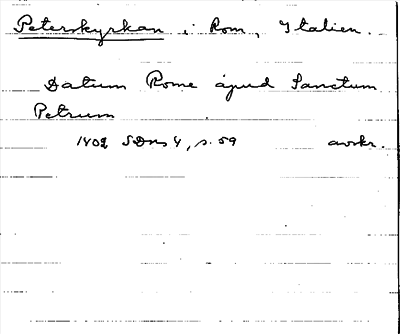 Peterskyrkan i Rom, Italien.
Datum Rome apud Sanctum
Petrum
1402 SDns 4, s. 59 avskr.